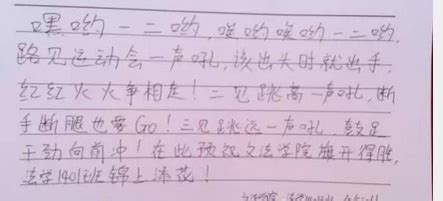 嘿哟一二哟,哎哟哎哟一二哟,
路见运动会一声吼,该出头时就出手,
红红火火争相走!二见跳高一声吼,断
手断腿也要Go!三见跳远一声吼,鼓足
干劲向前冲!在此预祝文法学院旗开得胜,
法学1401班锦上添花!